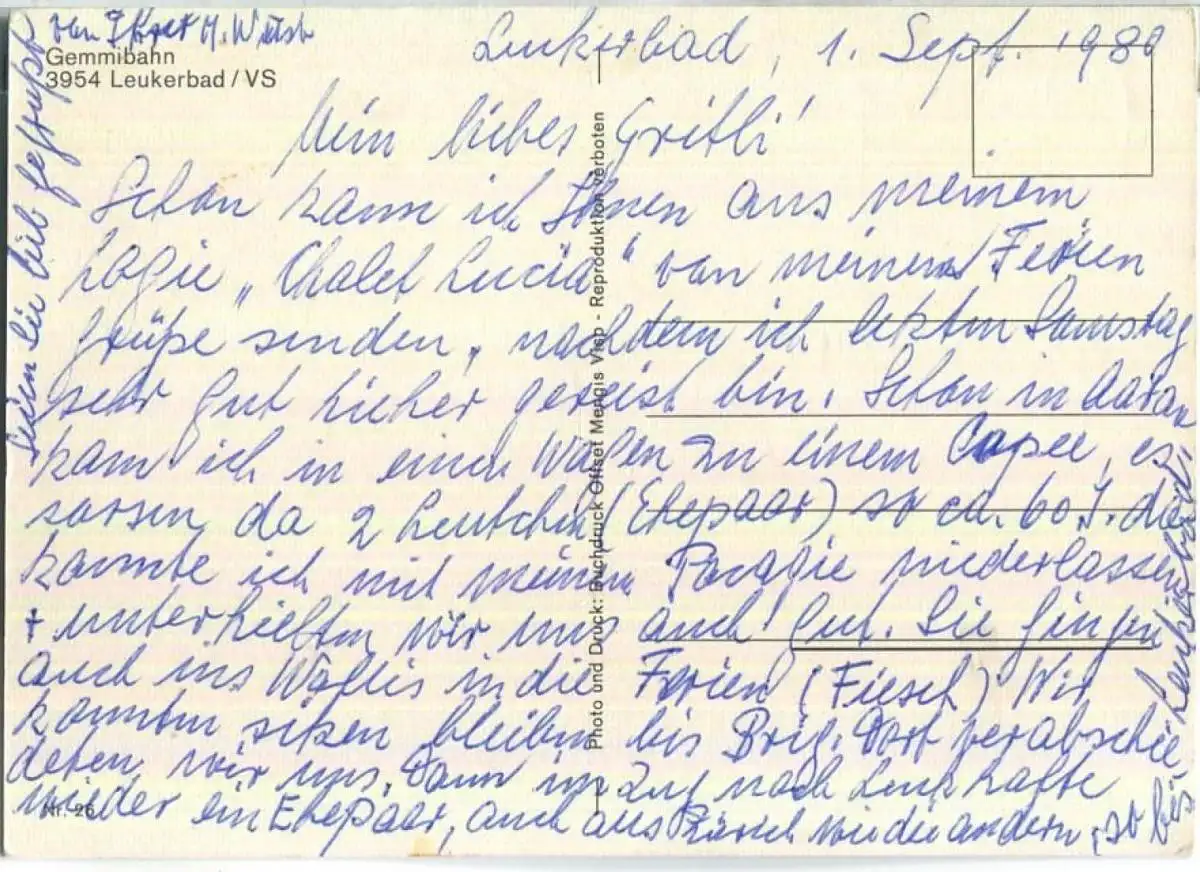 Gemmibahn
3954 Leukerbad / VS
Leukerbad, 1. Sept. 1980
Mein liebes Gritli!
Schon kann ich Ihnen aus meinem
Logie „Chalet Lucia“ von meinen Ferien
Grüße senden, nachdem ich letzten Samstag
sehr gut hieher gereist bin. Schon in Aarau
kam ich in einen Wagen zu einem Copee, es
sassen da 2 Leutchen (Ehepaar) so ca. 60 J. da
konnte ich mit meinem Pacagie niederlassen
+ unterhielten wir uns auch gut. Sie gingen
auch ins Wallis in die Ferien (Fiesch) Wir
konnten sitzen bleiben bis Brig. Dort verabschie
deten wir uns. Dann im Zug nach Leuk hatte
wieder ein Ehepaar, auch aus Zürich wie die andern, so bis
Leukerbad.
Seien Sie lieb gegrüsst
von Ihrer M.
Photo und Druck: Buchdruck Offset Mengis Visp - Reproduktion verboten
Nr. 26